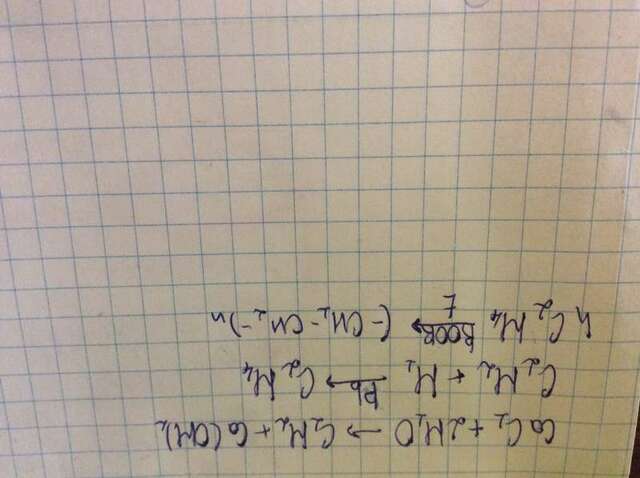 CaC₂ + 2H₂O → C₂H₂ + Ca(OH)₂
C₂H₂ + H₂ →[Pb] C₂H₄
n C₂H₄ →[ROOR, t] (-CH₂-CH₂-)n